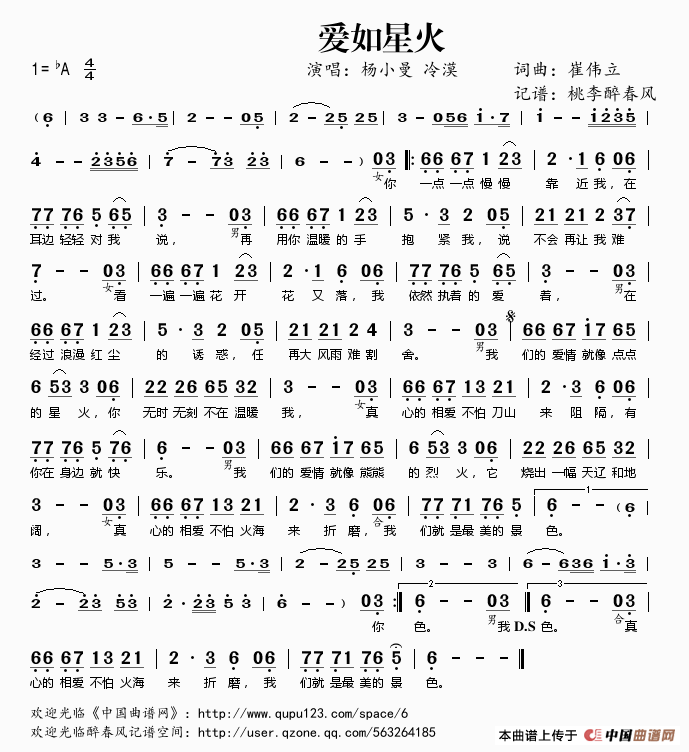 爱如星火
1=♭A 4/4 演唱：杨小曼 冷漠 词曲：崔伟立
记谱：桃李醉春风
(6 | 3 3 - 6·5 | 2 - - 05 | 2 - 25 25 | 3 - 056 1·7 | 1 - - 1235 |
4 - - 2356 | 7 - 73 23 | 6 - - ) 03 |: 66 67 1 23 | 2·1 6 06 |
女你 一点一点慢慢 靠近我，在
77 76 5 65 | 3 - - 03 | 66 67 1 23 | 5·3 2 05 | 21 21 2 37 |
耳边轻轻对我 说， 男再 用你温暖的手 抱紧我，说 不会再让我难
7 - - 03 | 66 67 1 23 | 2·1 6 06 | 77 76 5 65 | 3 - - 03 |
过。 女看 一遍一遍花开 花又落，我 依然执着的爱 着， 男在
66 67 1 23 | 5·3 2 05 | 21 21 2 4 | 3 - - 03 | 66 67 17 65 |
经过浪漫红尘 的诱惑，任 再大风雨难割 舍。 男我 们的爱情就像点点
6 53 3 06 | 22 26 65 32 | 3 - - 03 | 66 67 13 21 | 2·3 6 06 |
的星火，你 无时无刻不在温暖 我， 女真 心的相爱不怕刀山 来阻隔，有
77 76 5 76 | 6 - - 03 | 66 67 17 65 | 6 53 3 06 | 22 26 65 32 |
你在身边就快 乐。 男我 们的爱情就像熊熊 的烈火，它 烧出一幅天辽和地
3 - - 03 | 66 67 13 21 | 2·3 6 06 | 77 71 76 5 | 6 - - (6 |
1
阔， 女真 心的相爱不怕火海 来折磨，合我 们就是最美的景 色。
3 - - 5·3 | 5 - - 5·3 | 2 - 2 25 | 3 - - 3 | 6 - 636 1·3 |
2 - 23 53 | 2·23 5 3 | 6 - - ) 03 :| 6 - - 03 :| 6 - - 03 |
2 3
你 色。 男我 D.S 色。 合真
66 67 13 21 | 2·3 6 06 | 77 71 76 5 | 6 - - - ‖
心的相爱不怕火海 来折磨，我 们就是最美的景 色。
欢迎光临《中国曲谱网》：http://www.qupu123.com/space/6
欢迎光临醉春风记谱空间：http://user.qzone.qq.com/563264185
本曲谱上传于 中国曲谱网